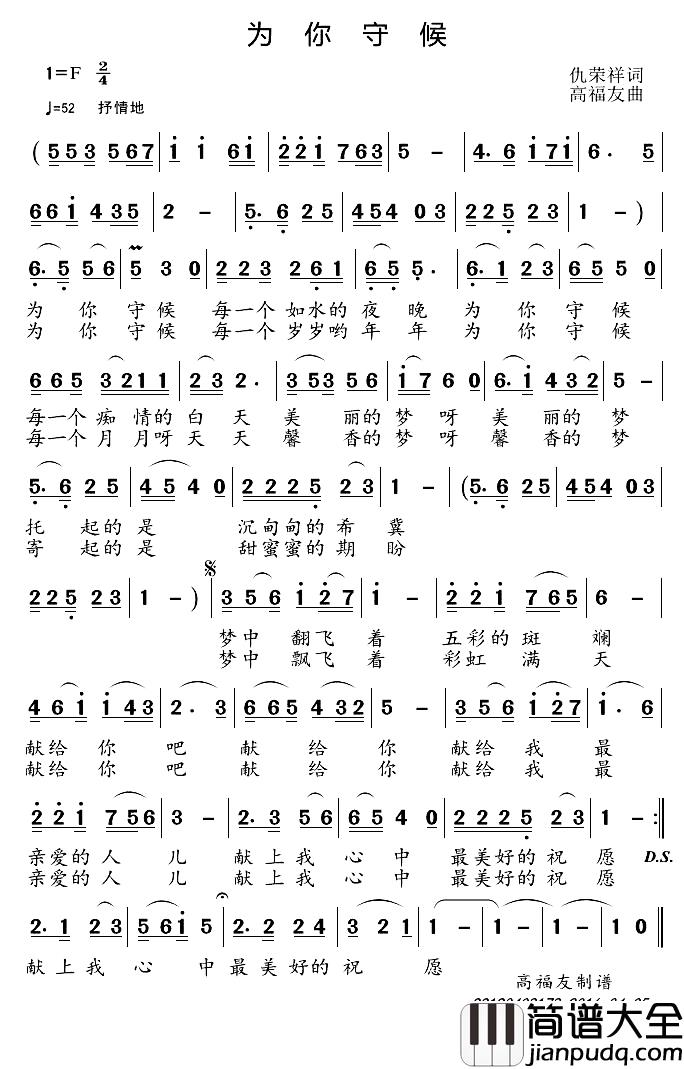 为 你 守 候
1=F 2/4
仇荣祥词
♩=52 抒情地
高福友曲
( 5 5 3 5 6 7 | 1 1 6 1 | 2 2 1 7 6 3 | 5 - | 4. 6 1 7 1 | 6. 5
6 6 1 4 3 5 | 2 - | 5. 6 2 5 | 4 5 4 0 3 | 2 2 5 2 3 | 1 - )
6. 5 5 6 | 5 3 0 | 2 2 3 2 6 1 | 6 5 5. | 6. 1 2 3 | 5 5 0
为 你 守 候 每一个 如水的 夜 晚 为 你 守 候
为 你 守 候 每一个 岁岁哟 年 年 为 你 守 候
6 6 5 3 2 1 1 | 2 3 2. | 3 5 3 5 6 | 1 7 6 0 | 6. 1 4 3 2 | 5 -
每一个 痴 情的 白 天 美 丽的 梦 呀 美 丽的 梦
每一个 月 月呀 天 天 馨 香的 梦 呀 馨 香的 梦
5. 6 2 5 | 4 5 4 0 | 2 2 2 5 2 3 | 1 - | (5. 6 2 5 | 4 5 4 0 3
托 起的 是 沉甸甸的 希 冀
寄 起的 是 甜蜜蜜的 期 盼
2 2 5 2 3 | 1 - ) | 3 5 6 1 2 7 | 1 - | 2 2 1 7 6 5 | 6 -
梦中 翻飞 着 五彩的 斑 斓
梦中 飘飞 着 彩虹 满 天
4 6 1 1 4 3 | 2. 3 | 6 6 5 4 3 2 | 5 - | 3 5 6 1 2 7 | 1. 6
献给 你 吧 献 给 你 献给 我 最
献给 你 吧 献 给 你 献给 我 最
2 2 2 7 5 6 | 3 - | 2. 3 5 6 | 6 5 4 0 | 2 2 2 5 2 3 | 1 - :||
亲爱的 人 儿 献 上 我 心 中 最美好的 祝 愿 D.S.
亲爱的 人 儿 献 上 我 心 中 最美好的 祝 愿
2. 1 2 3 | 5 6 1 5 | 2. 2 2 4 | 3 2 1 | 1 - | 1 - | 1 0 ||
献 上 我 心 中 最 美 好的 祝 愿
高福友制谱
简谱大全
jianpudq.com